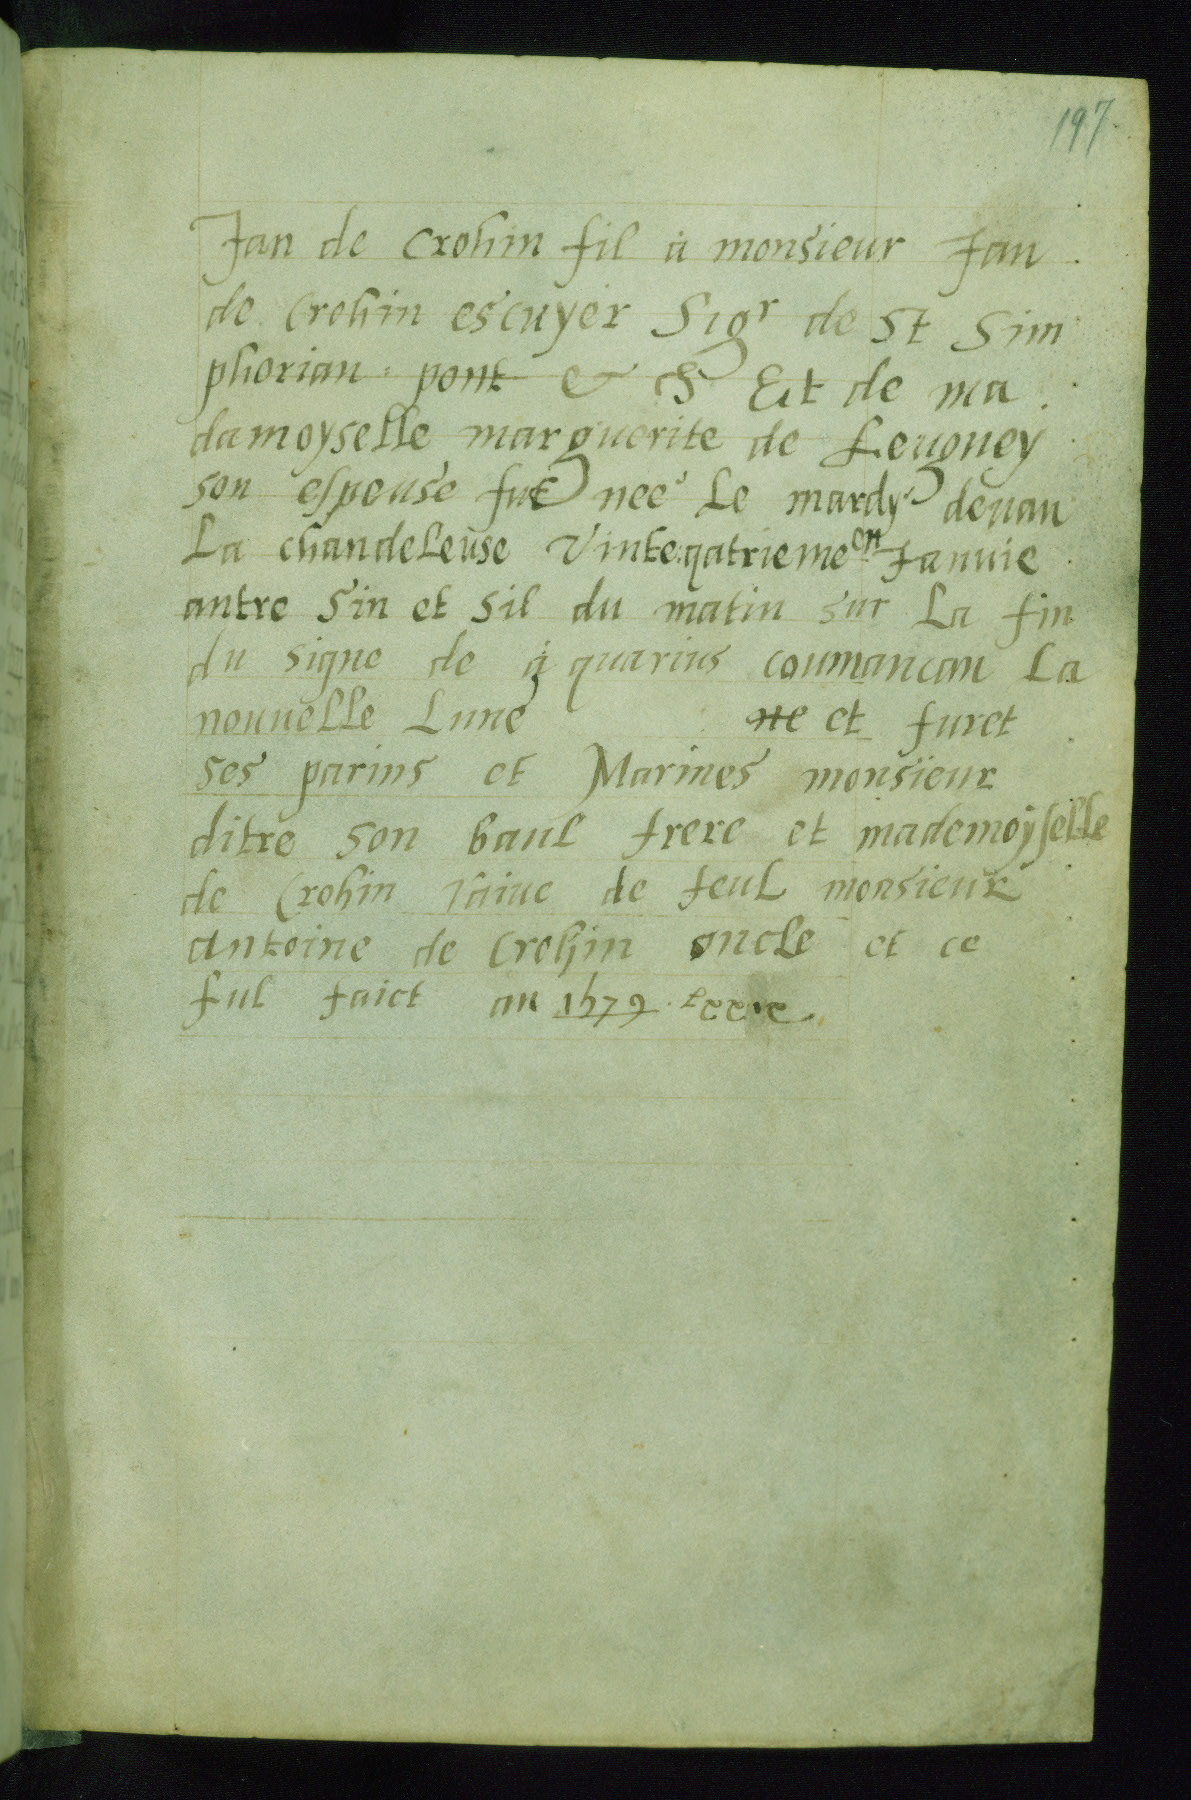 197.
Jan de crohin fil a monsieur Jan
de Crohin escuyer Sigr de St Sim
phorian pont & Et de ma
damoyselle marguerite de Leugney
son espeuse fut nee Le mardy devan
La chandeleuse vinteqatrieme en Januie
antre sin et sil du matin sur La fin
du signe de aquarius coumancan La
nouuelle Lune ne et furet
ses parins et Marines monsieur
ditre son baul frere et mademoyselle
de Crohin vaiue de feul monsieur
antoine de Crohin oncle et ce
ful faict an 1579